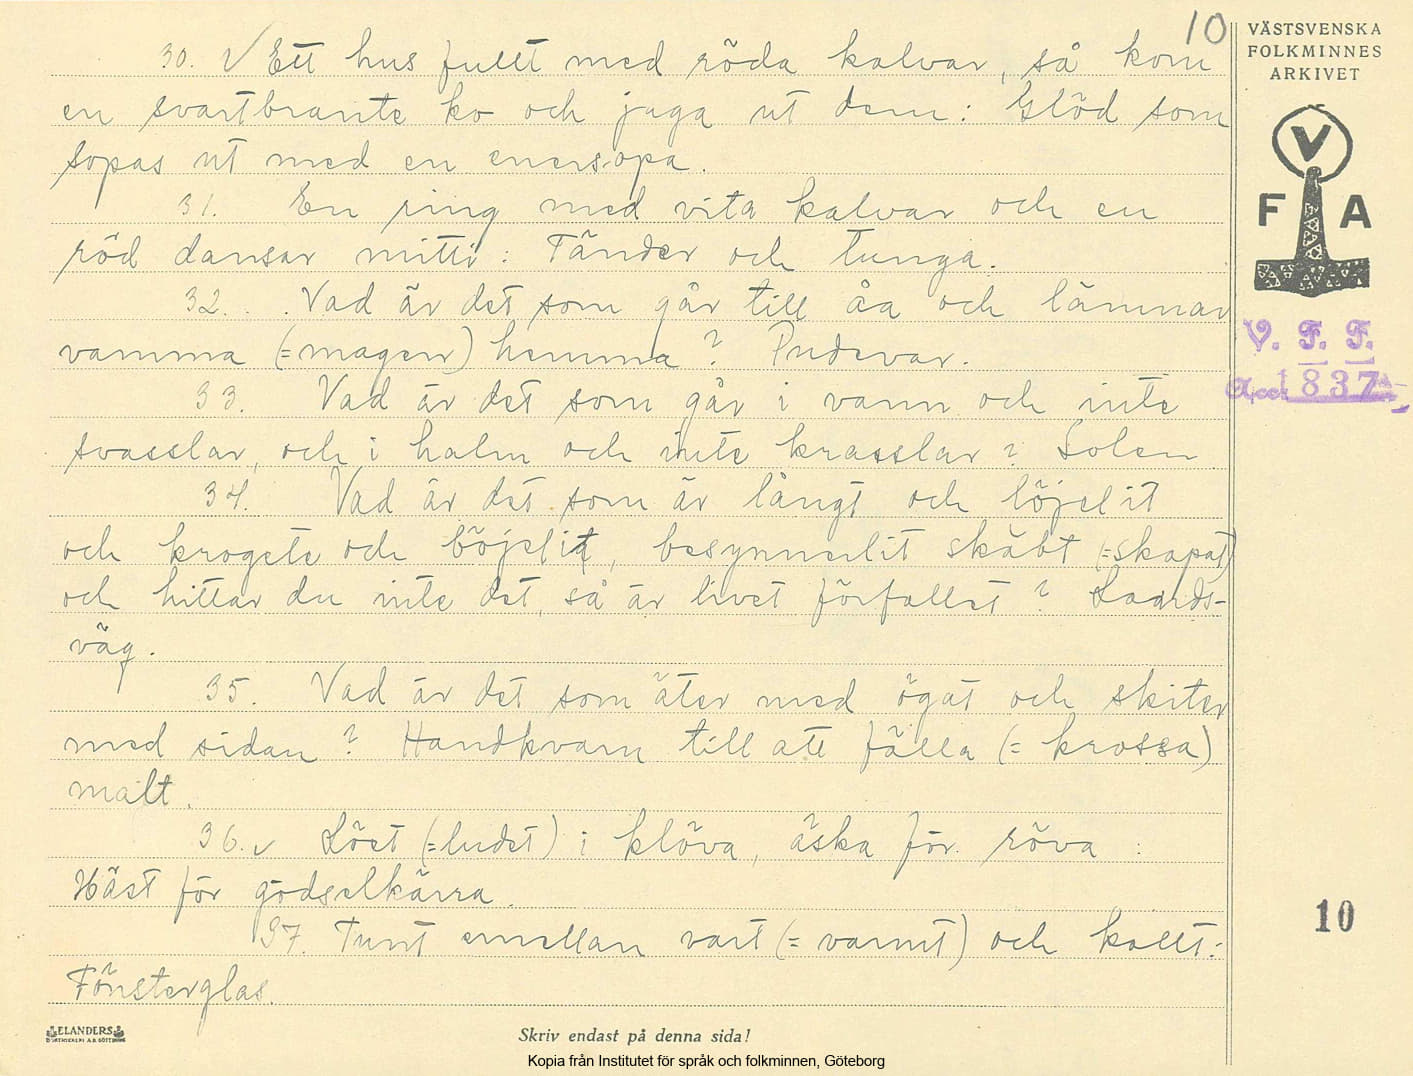 10
VÄSTSVENSKA
FOLKMINNES
ARKIVET
V
F A
V. F. F.
Acc. 1837
30. V Ett hus fullt med röda kalvar, så kom
en svartbrante ko och jaga ut dem: Glöd som
sopas ut med en enersopa.
31. En ring med vita kalvar och en
röd dansar mitti: Tänder och tunga.
32. Vad är det som går till åa och lämnar
vamma (= magen) hemma? Pudevar.
33. Vad är det som går i vann och inte
svasslar, och i halm och inte krasslar? Solen
34. Vad är det som är långt och löjelit
och krogete och böjelit, besynnerlit skäbt (= skapat)
och hittar du inte det, så är livet förfallet? Laards-
väg.
35. Vad är det som äter med ögat och skiter
med sidan? Handkvarn till att fälla (= krossa)
malt.
36. v Löet (= ludet) i klöva, äska för röva:
Häst för gödselkärra.
37. Tunt emellan vart (= varmt) och kallt:
Fönsterglas.
10
ELANDERS
Skriv endast på denna sida!
Kopia från Institutet för språk och folkminnen, Göteborg